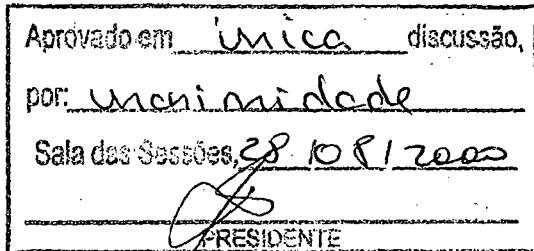 Aprovado em única discussão,
por: unanimidade
Sala das Sessões, 28/08/2000
PRESIDENTE